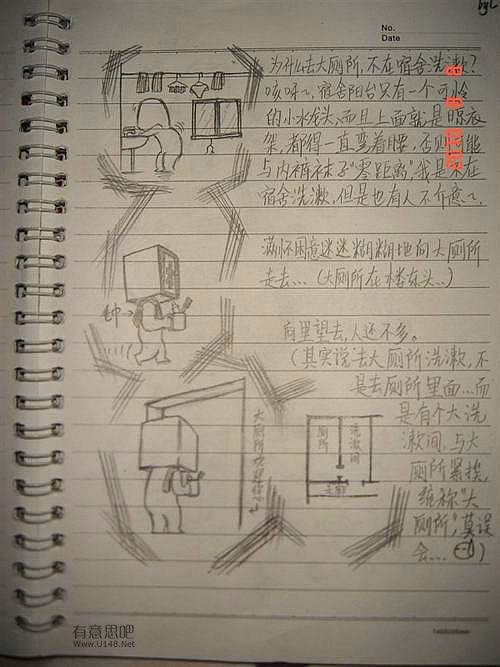 No.
Date
为什么去大厕所,不在宿舍洗漱?
咳呀~,宿舍阳台只有一个可怜
的小水龙头,而且上面就是晾衣
架,都得一直弯着腰,否则可能
与内裤袜子"零距离",我是不在
宿舍洗漱,但是也有人不介意~.
满怀困意迷迷糊糊地向大厕所
走去...(大厕所在楼东头..)
向里望去,人还不多。
(其实说去大厕所洗漱,不
是去厕所里面...而
是有个大洗
漱间,与大
厕所紧挨,
统称"大
厕所",莫误
会... )
大厕所欢迎您~
厕所
洗漱间
走廊
有意思吧
Www.U148.Net